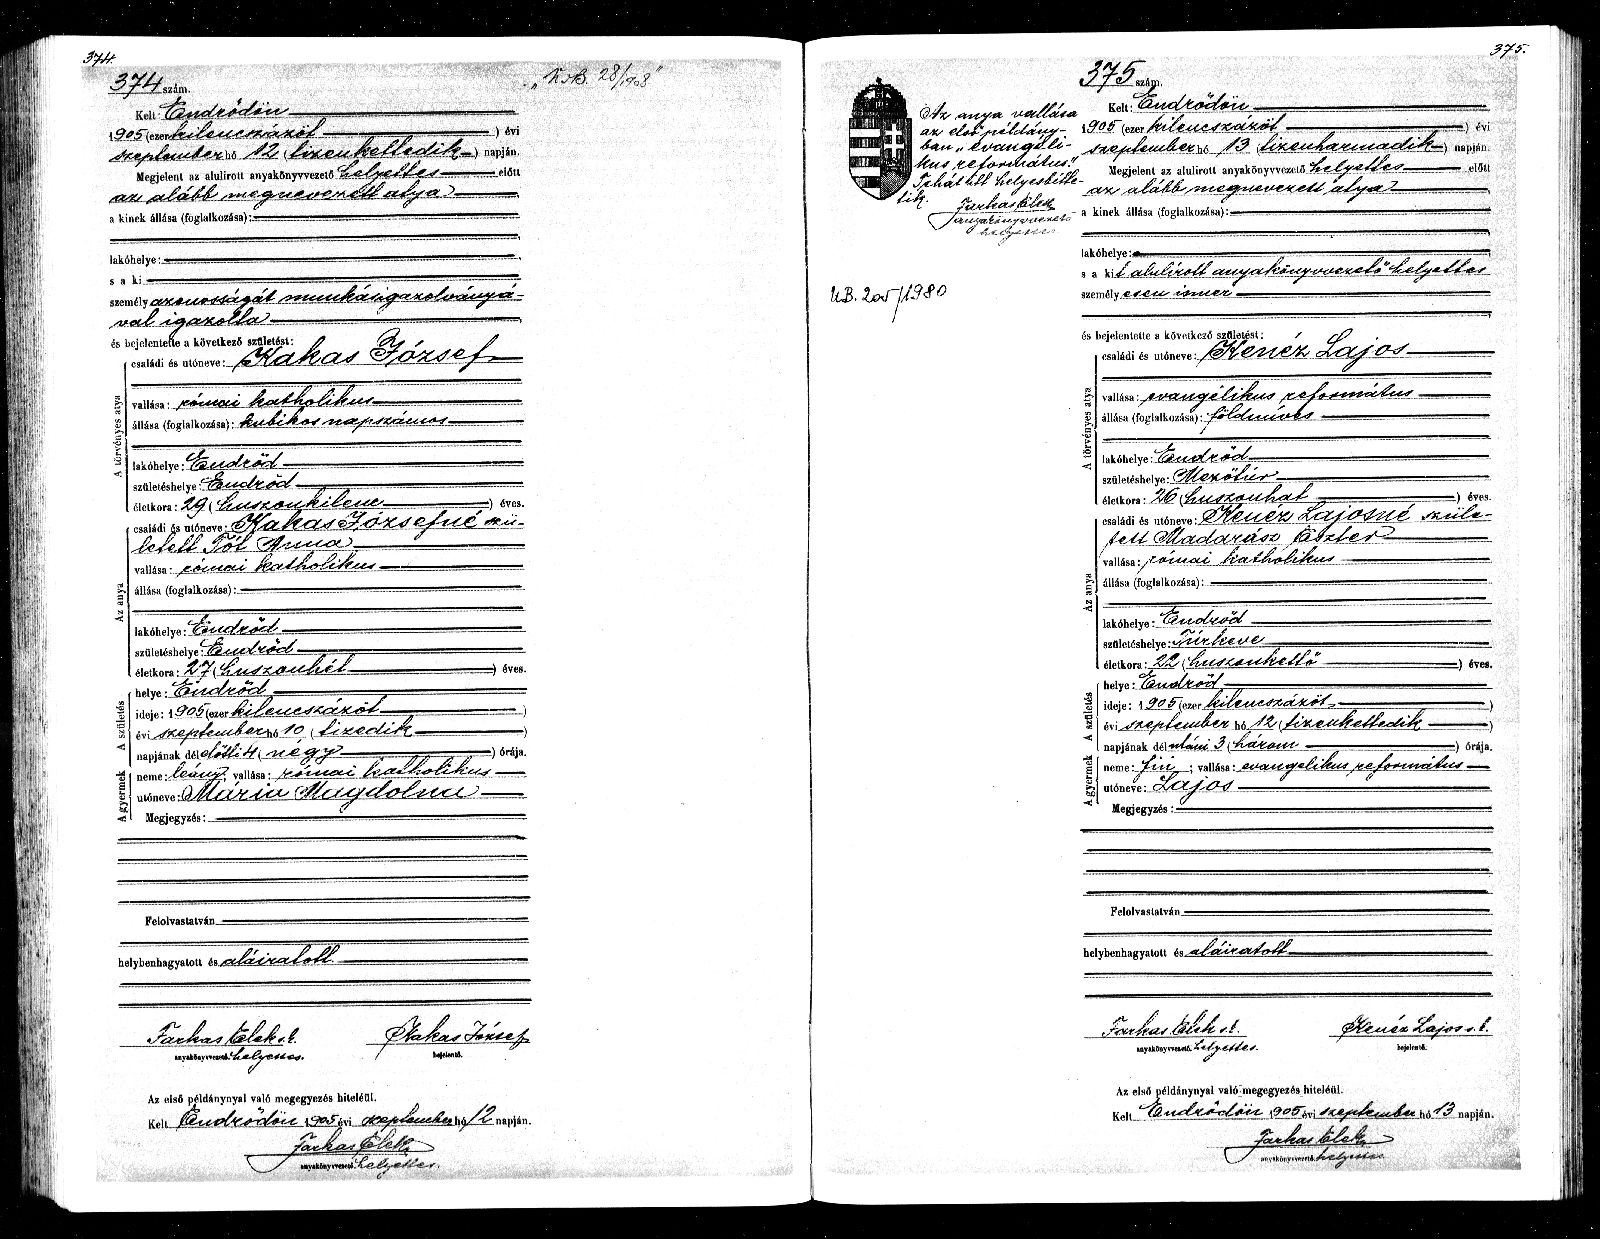 374.
374 szám.
Kelt: Endrődön
1905 (ezer kilencszázöt ) évi
szeptember hó 12 (tizenkettedik ) napján.
Megjelent az alulirott anyakönyvvezető helyettes előtt
az alább megnevezett atya
a kinek állása (foglalkozása):
lakóhelye:
s a ki
személyazonosságát munkásigazolványá-
val igazolta
és bejelentette a következő születést:
A törvényes atya
családi és utóneve: Kakas József
vallása: római katholikus
állása (foglalkozása): kubikos napszámos
lakóhelye: Endrőd
születéshelye: Endrőd
életkora: 29 (huszonkilenc ) éves.
Az anya
családi és utóneve: Kakas Józsefné szü-
letett Tót Anna
vallása: római katholikus
állása (foglalkozása):
lakóhelye: Endrőd
születéshelye: Endrőd
életkora: 27 (huszonhét ) éves.
A születés
helye: Endrőd
ideje: 1905 (ezer kilencszázöt )
évi szeptember hó 10 (tizedik )
napjának délelőtti 4 (négy ) órája.
A gyermek
neme: leány; vallása: római katholikus
utóneve: Mária Magdolna
Megjegyzés:
Felolvastatván
helybenhagyatott és aláiratott
Farkas Elek s.k. Kakas József
anyakönyvvezető helyettes. bejelentő.
Az első példánynyal való megegyezés hiteléül.
Kelt Endrődön 1905 évi szeptember hó 12 napján.
Farkas Elek
anyakönyvvezető helyettes.
28/1908"
375.
Az anya vallása
az első példány-
ban "evangéli-
kus református."
Tehát itt helyesbítte-
tik.
Farkas Elek
anyakönyvvezető
helyettes
U.B. 205/1980
375 szám.
Kelt: Endrődön
1905 (ezer kilencszázöt ) évi
szeptember hó 13 (tizenharmadik ) napján.
Megjelent az alulirott anyakönyvvezető helyettes előtt
az alább megnevezett atya
a kinek állása (foglalkozása):
lakóhelye:
s a kit alulírott anyakönyvvezető helyettes
személyesen ismer
és bejelentette a következő születést:
A törvényes atya
családi és utóneve: Kenéz Lajos
vallása: evangélikus református
állása (foglalkozása): földmüves
lakóhelye: Endrőd
születéshelye: Mezőtúr
életkora: 26 (huszonhat ) éves.
Az anya
családi és utóneve: Kenéz Lajosné szüle-
tett Madarász Eszter
vallása: római katholikus
állása (foglalkozása):
lakóhelye: Endrőd
születéshelye: Túrkeve
életkora: 22 (huszonkettő ) éves.
A születés
helye: Endrőd
ideje: 1905 (ezer kilencszázöt )
évi szeptember hó 12 (tizenkettedik )
napjának délutáni 3 (három ) órája.
A gyermek
neme: fiú ; vallása: evangelikus református
utóneve: Lajos
Megjegyzés:
Felolvastatván
helybenhagyatott és aláiratott
Farkas Elek s.k. Kenéz Lajos s.k.
anyakönyvvezető helyettes. bejelentő.
Az első példánynyal való megegyezés hiteléül.
Kelt Endrődön 1905 évi szeptember hó 13 napján.
Farkas Elek
anyakönyvvezető helyettes